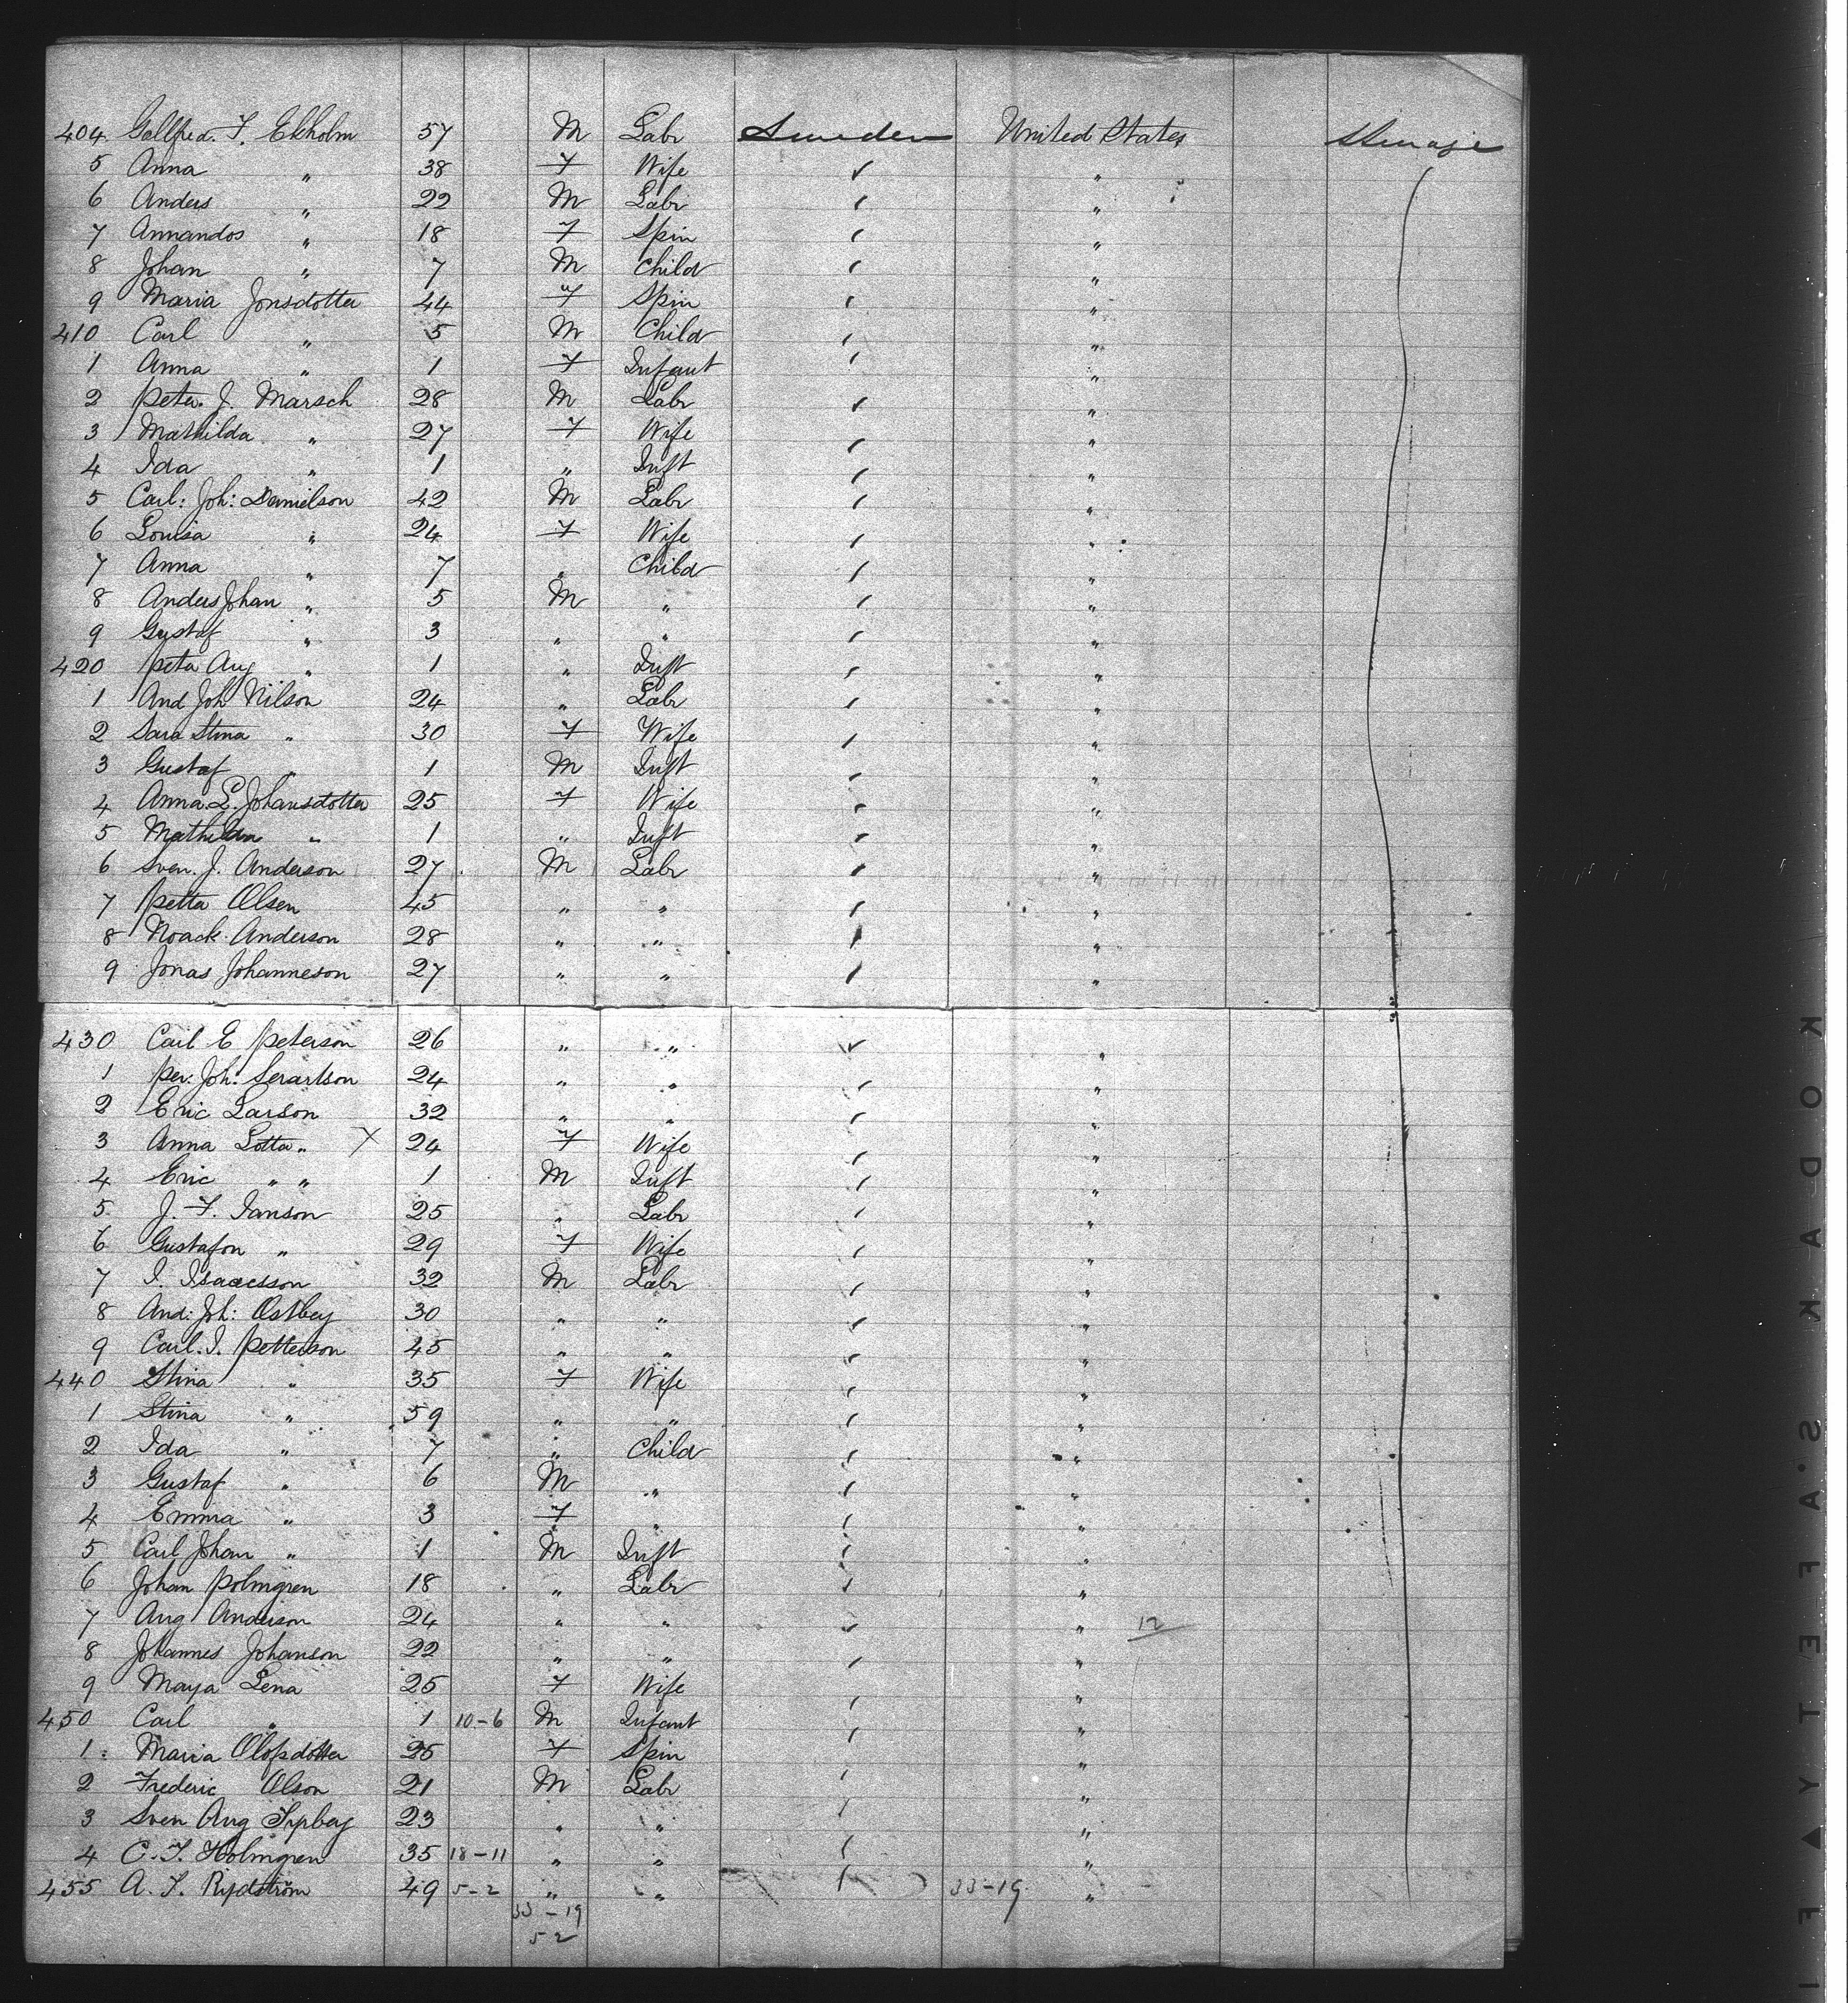 404. Gollfred. F. Ekholm 57 M Labr Sweden United States Steerage
5 Anna " 38 F Wife " "
6 Anders " 22 M Labr " "
7 Annandos " 18 F Spin " "
8 Johan " 7 M Child " "
9 Maria Jonsdotter 44 F Spin " "
410 Carl " 5 M Child " "
1 Anna " 1 F Infant " "
2 Peter. J. Marsch 28 M Labr " "
3 Mathilda " 27 F Wife " "
4 Ida " 1 " Inft " "
5 Carl: Joh: Danielson 42 M Labr " "
6 Louisa " 24 F Wife " "
7 Anna " 7 " Child " "
8 Anders Johan " 5 M " " "
9 Gustaf " 3 " " " "
420 Peter Aug " 1 " Inft " "
1 And Joh Nilson 24 " Labr " "
2 Sara Stina " 30 F Wife " "
3 Gustaf " 1 M Inft " "
4 Anna. L. Johansdotter 25 F Wife " "
5 Mathilda " 1 " Inft " "
6 Sven. J. Anderson 27 M Labr " "
7 Petter Olsen 45 " " " "
8 Noack Anderson 28 " " " "
9 Jonas Johanneson 27 " " " "
430 Carl E Peterson 26 " " " "
1 Per: Joh: 24 " " " "
2 Eric Larson 32 " " " "
3 Anna Lotta " X 24 F Wife " "
4 Eric " " 1 M Inft " "
5 J. F. Ianson 25 " Labr " "
6 Gustafon " 29 F Wife " "
7 I. Isaacsson 32 M Labr " "
8 And: Joh: Ostberg 30 " " " "
9 Carl. I. Petterson 45 " " " "
440 Stina " 35 F Wife " "
1 Stina " 59 " " " "
2 Ida " 7 " Child " "
3 Gustaf " 6 M " " "
4 Emma " 3 F " " "
5 Carl Johan " 1 M Inft " "
6 Johan Polmgren 18 " Labr " "
7 Aug Anderson 24 " " " " 12
8 Johannes Johanson 22 " " " "
9 Maya Lena 25 F Wife " "
450 Carl " 1 10-6 M Infant " "
1 Maria Olofsdotter 25 F Spin " "
2 Frederic Olson 21 M Labr " "
3 Sven Aug 23 " " " "
4 C. F. Holmgren 35 18-11 " " " "
455 A. F. Rydström 49 5-2 " " " 33-19 "
33-19
5-2
KODAK SAFETY